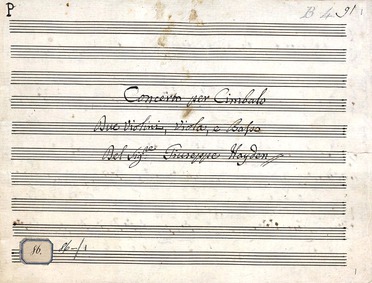 P
B 4 91
Concerto per Cimbalo
Due Violini, Viola, e Basso
Del Sigre Giuseppe Hayden
16.
1